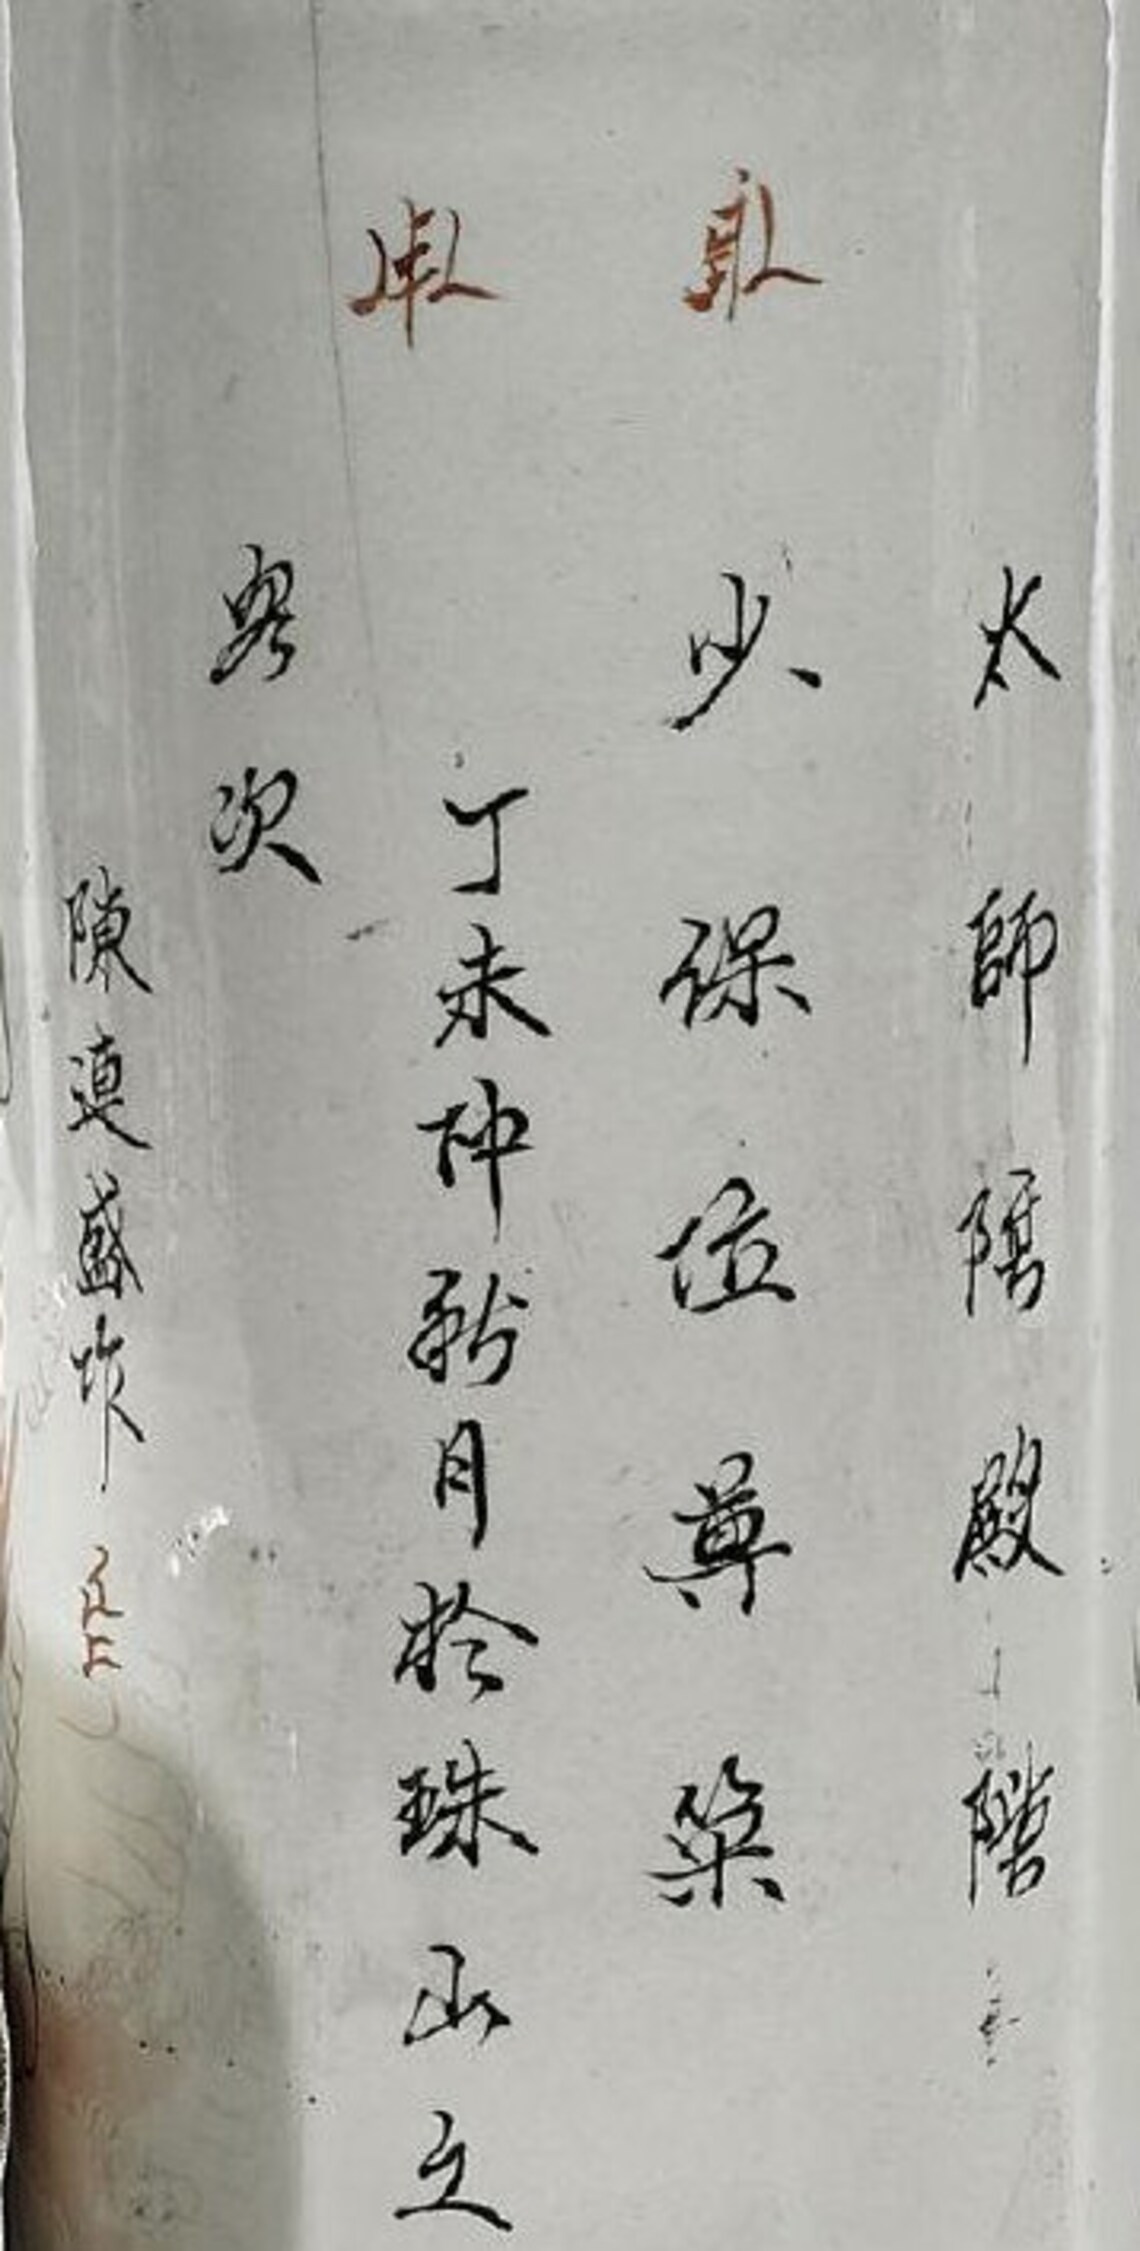 太師隔殿階
少保位尊榮
丁未仲秋月於珠山之
客次
陳連盛作